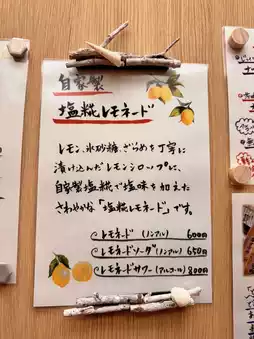 自家製
塩糀レモネード
レモン、氷砂糖、ざらめを丁寧に
漬け込んだレモンシロップに、
自家製塩糀で塩味を加えた
さわやかな「塩糀レモネード」です。
レモネード (ノンアル) 600円
レモネードソーダ (ノンアル) 650円
レモネードサワー (アルコール) 800円